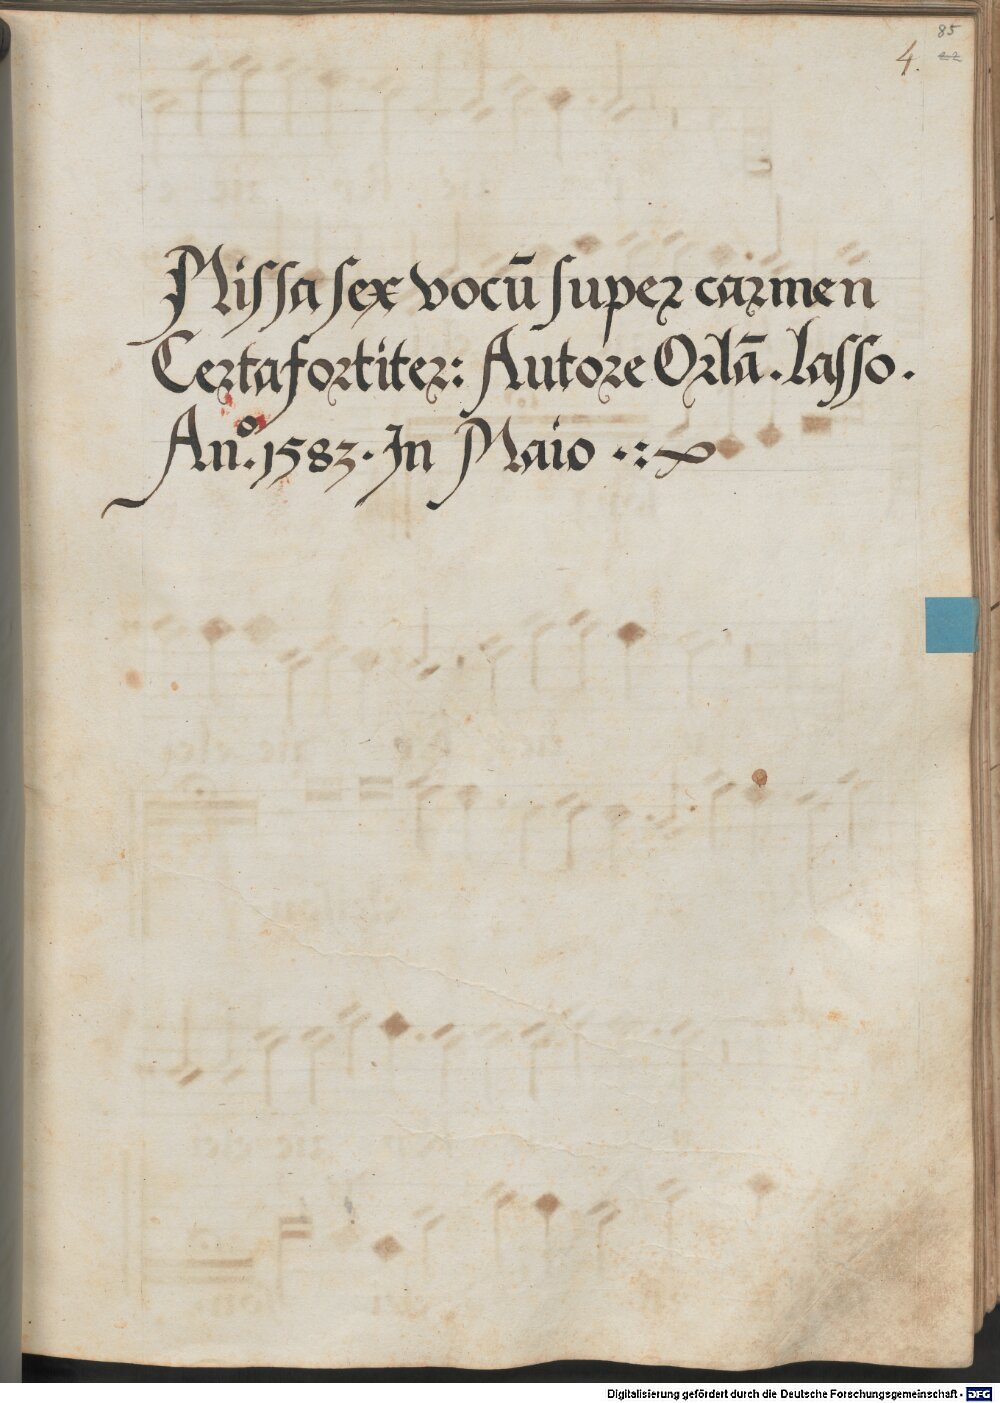 85
4. 22
Missa sex vocū super carmen
Certa fortiter: Autore Orlā. lasso.
An͞o. 1583. In Maio .:
Digitalisierung gefördert durch die Deutsche Forschungsgemeinschaft - DFG